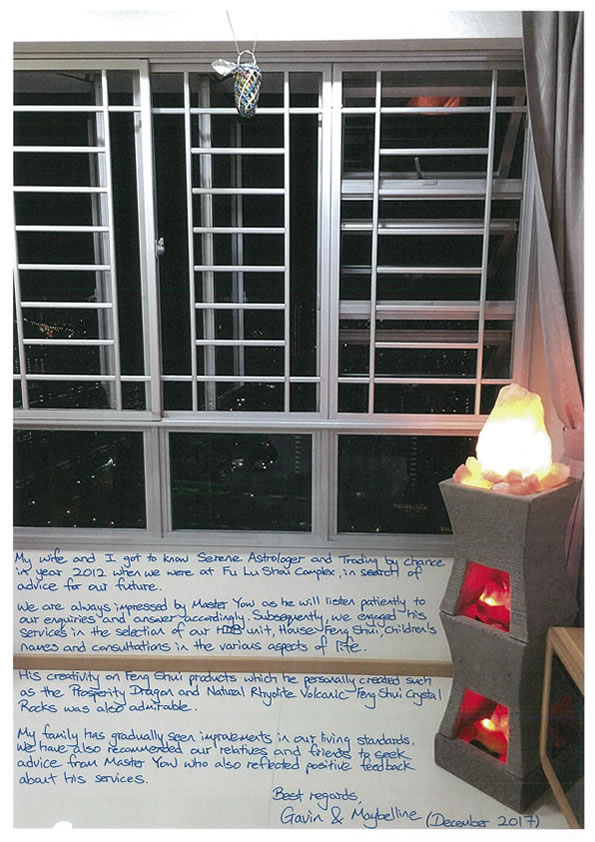 My wife and I got to know Serene Astrologer and Trading by chance
in year 2012 when we were at Fu Lu Shou Complex, in search of
advice for our future.
We are always impressed by Master Yow as he will listen patiently to
our enquiries and answer accordingly. Subsequently, we engaged his
services in the selection of our HDB unit, House Feng Shui, Children's
names and consultations in the various aspects of life.
His creativity on Feng Shui products which he personally created such
as the Prosperity Dragon and Natural Rhyolite Volcanic Feng Shui Crystal
Rocks was also admirable.
My family has gradually seen improvements in our living standards.
We have also recommended our relatives and friends to seek
advice from Master Yow who also reflected positive feedback
about his services.
Best regards,
Gavin & Maybelline (December 2017)